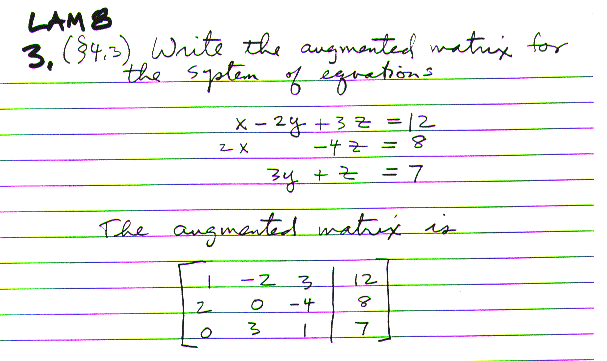 LAM 8
3. (§4.3) Write the augmented matrix for
the system of equations
x - 2y + 3z = 12
2x - 4z = 8
3y + z = 7
The augmented matrix is
1 -2 3 | 12
2 0 -4 | 8
0 3 1 | 7